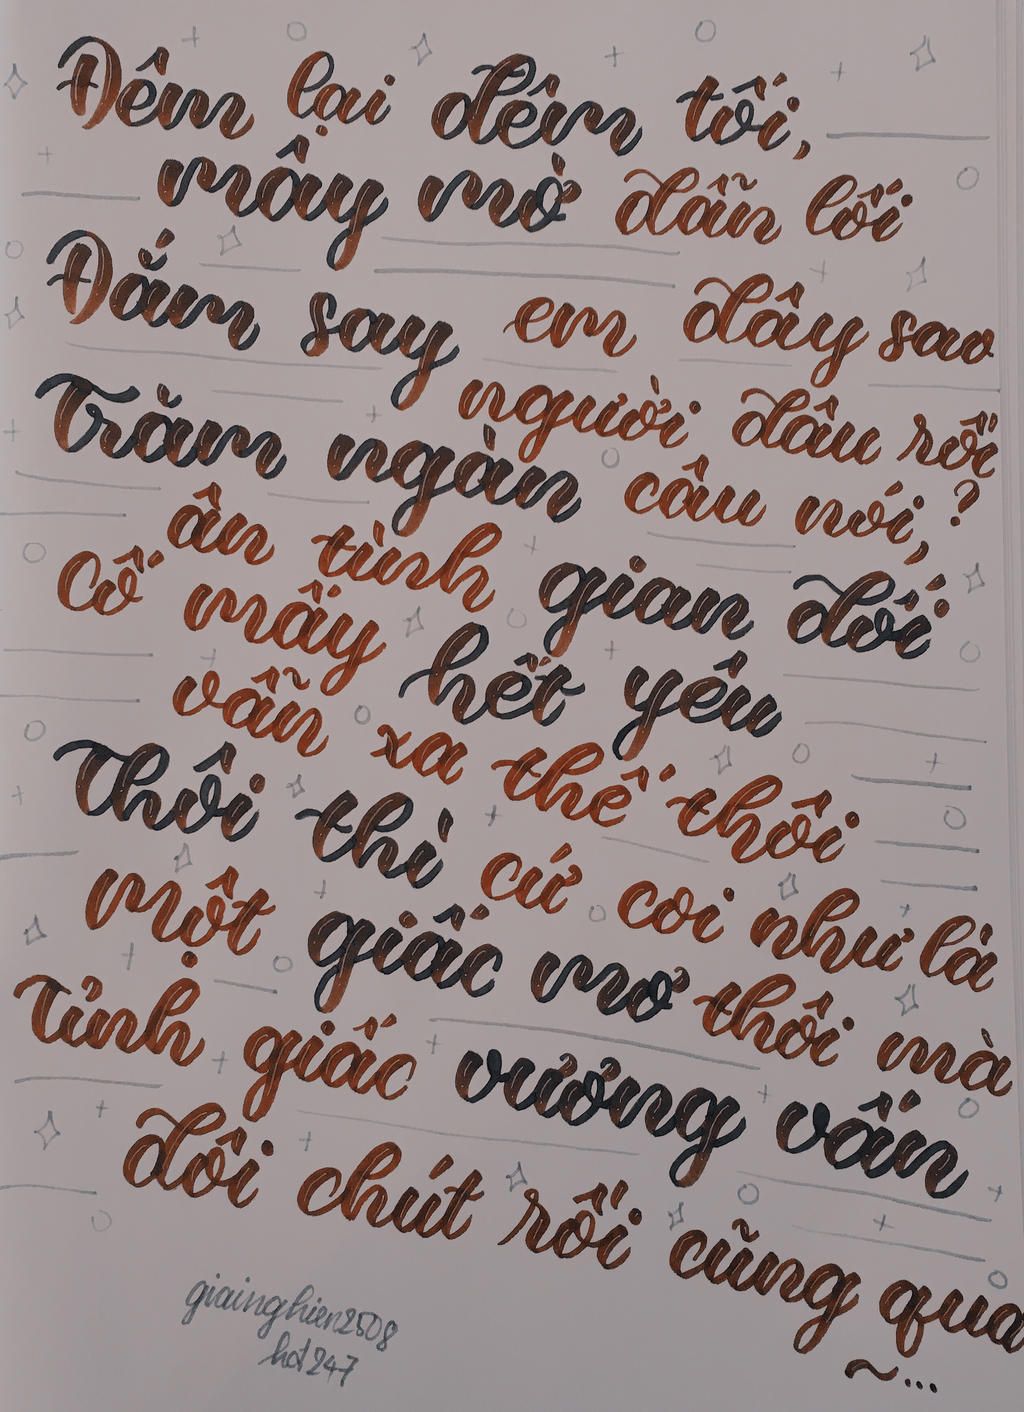 Đêm lại đêm tối,
mây mờ dẫn lối
Đắm say em đây sao
người đâu rồi
Trăm ngàn câu nói, ?
ân tình gian dối
Cố mấy hết yêu
vẫn xa thế thôi
Thôi thì cứ coi như là
một giấc mơ thôi mà
Tỉnh giấc vương vấn
đôi chút rồi cũng qua
~...
giainghien2508
hd247